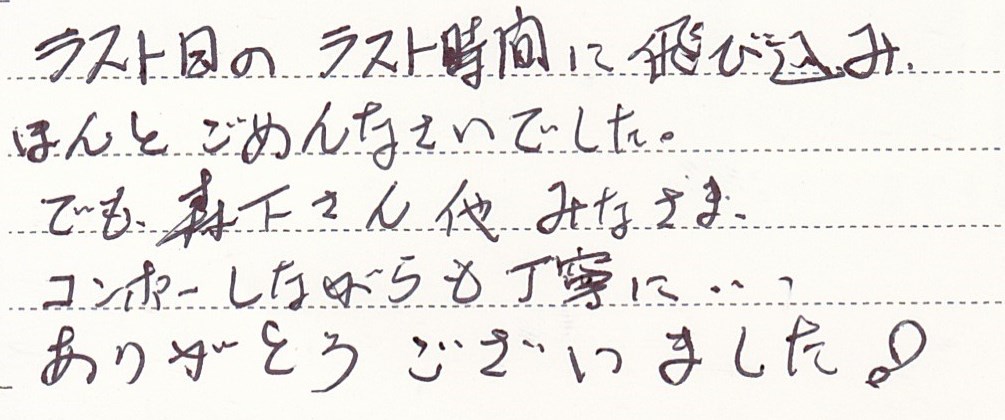 ラスト日の ラスト時間に飛び込み、
ほんと ごめんなさいでした。
でも、森下さん他 みなさま、
コンボーしながらも丁寧に…、
ありがとう ございました!